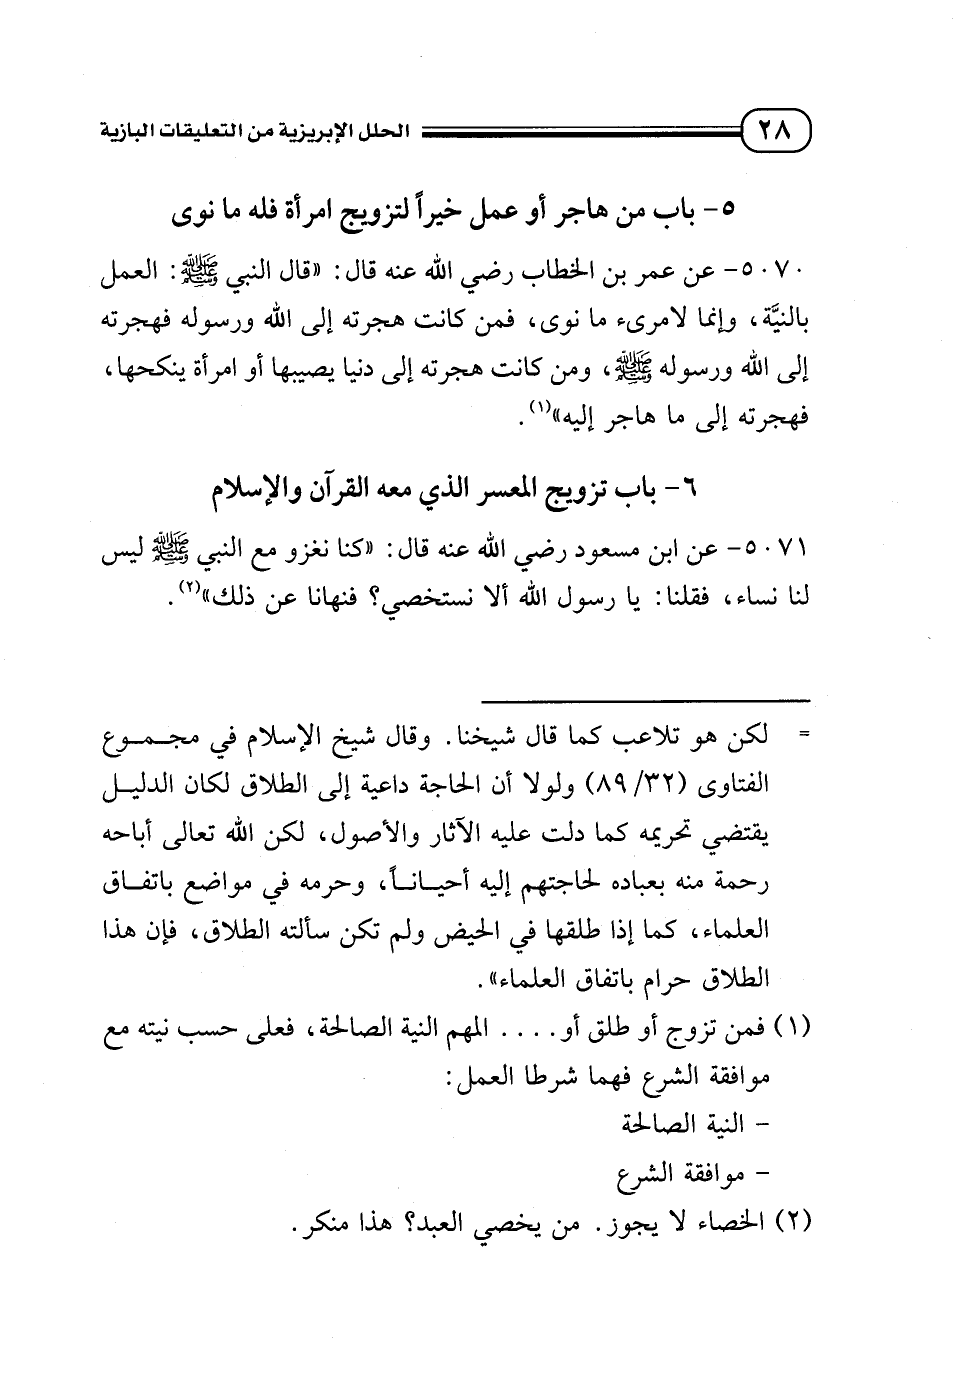 ٢٨ الحلل الإبريزية من التعليقات البازية
٥- باب من هاجر أو عمل خيراً لتزويج امرأة فله ما نوى
٥٠٧٠- عن عمر بن الخطاب رضي الله عنه قال: «قال النبي ﷺ: العمل
بالنيَّة، وإنما لامرىء ما نوى، فمن كانت هجرته إلى الله ورسوله فهجرته
إلى الله ورسوله ﷺ، ومن كانت هجرته إلى دنيا يصيبها أو امرأة ينكحها،
فهجرته إلى ما هاجر إليه»(١).
٦- باب تزويج المعسر الذي معه القرآن والإسلام
٥٠٧١- عن ابن مسعود رضي الله عنه قال: «كنا نغزو مع النبي ﷺ ليس
لنا نساء، فقلنا: يا رسول الله ألا نستخصي؟ فنهانا عن ذلك»(٢).
= لكن هو تلاعب كما قال شيخنا. وقال شيخ الإسلام في مجموع
الفتاوى (٨٩/٣٢) ولولا أن الحاجة داعية إلى الطلاق لكان الدليل
يقتضي تحريمه كما دلت عليه الآثار والأصول، لكن الله تعالى أباحه
رحمة منه بعباده لحاجتهم إليه أحياناً، وحرمه في مواضع باتفاق
العلماء، كما إذا طلقها في الحيض ولم تكن سألته الطلاق، فإن هذا
الطلاق حرام باتفاق العلماء».
(١) فمن تزوج أو طلق أو.... المهم النية الصالحة، فعلى حسب نيته مع
موافقة الشرع فهما شرطا العمل:
- النية الصالحة
- موافقة الشرع
(٢) الخصاء لا يجوز. من يخصي العبد؟ هذا منكر.